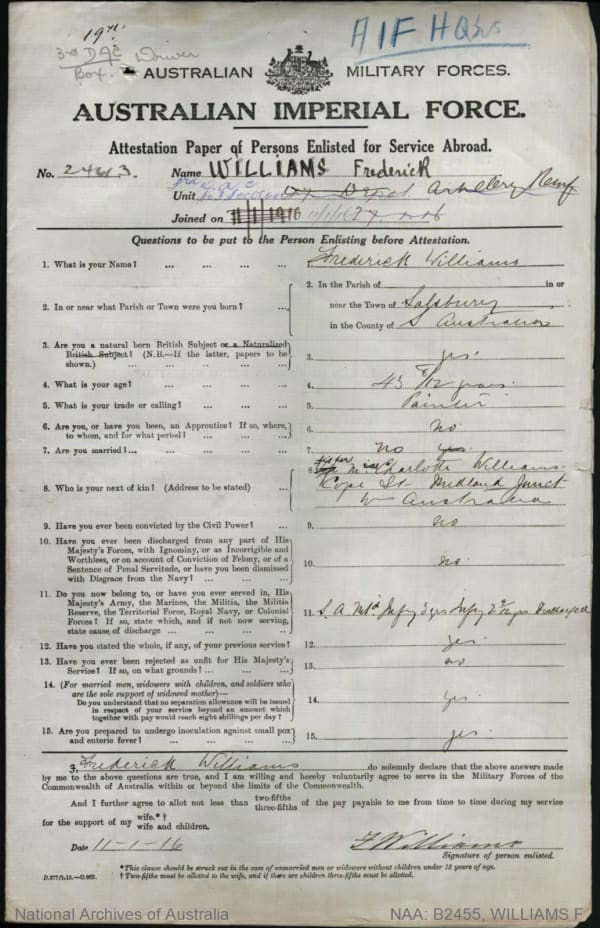 19th
A I F H Qrs
3rd DAC Driver
Box.
AUSTRALIAN MILITARY FORCES.
AUSTRALIAN IMPERIAL FORCE.
Attestation Paper of Persons Enlisted for Service Abroad.
No. 2461 3. Name WILLIAMS Frederick
Unit Depot. Artillery Reinf
Joined on 11 1 1916 11/1/16
Questions to be put to the Person Enlisting before Attestation.
1. What is your Name? ... ... ... ... Frederick Williams
2. In or near what Parish or Town were you born? ... 2. In the Parish of in or
near the Town of Salsbury
in the County of S Australia
3. Are you a natural born British Subject or a Naturalized
British Subject? (N.B.—If the latter, papers to be
shown.) ... ... ... ... ... 3. yes.
4. What is your age? ... ... ... ... 4. 43 8/12 years.
5. What is your trade or calling? ... ... ... 5. Painter
6. Are you, or have you been, an Apprentice? If so, where,
to whom, and for what period? ... ... ... 6. no
7. Are you married? ... ... ... ... 7. no yes.
8. Who is your next of kin? (Address to be stated) ... 8. sister Charlotte Williams
Cope St Midland Junct
W Australia
9. Have you ever been convicted by the Civil Power? ... 9. no
10. Have you ever been discharged from any part of His
Majesty's Forces, with Ignominy, or as Incorrigible and
Worthless, or on account of Conviction of Felony, or of a
Sentence of Penal Servitude, or have you been dismissed
with Disgrace from the Navy? ... ... ... 10. no.
11. Do you now belong to, or have you ever served in, His
Majesty's Army, the Marines, the Militia, the Militia
Reserve, the Territorial Force, Royal Navy, or Colonial
Forces? If so, state which, and if not now serving,
state cause of discharge ... ... ... ... 11. S. A. Infy 3 yrs Infy yrs
12. Have you stated the whole, if any, of your previous service? 12. yes.
13. Have you ever been rejected as unfit for His Majesty's
Service? If so, on what grounds? ... ... ... 13. no
14. (For married men, widowers with children, and soldiers who
are the sole support of widowed mother)—
Do you understand that no separation allowance will be issued
in respect of your service beyond an amount which
together with pay would reach eight shillings per day? 14. yes.
15. Are you prepared to undergo inoculation against small pox
and enteric fever? ... ... ... ... 15. yes.
I, Frederick Williams do solemnly declare that the above answers made
by me to the above questions are true, and I am willing and hereby voluntarily agree to serve in the Military Forces of the
Commonwealth of Australia within or beyond the limits of the Commonwealth.
And I further agree to allot not less than two-fifths three-fifths of the pay payable to me from time to time during my service
for the support of my wife.*† wife and children.
Date 11-1-16 F Williams
Signature of person enlisted.
*This clause should be struck out in the case of unmarried men or widowers without children under 18 years of age.
† Two-fifths must be allotted to the wife, and if there are children three-fifths must be allotted.
National Archives of Australia NAA: B2455, WILLIAMS F